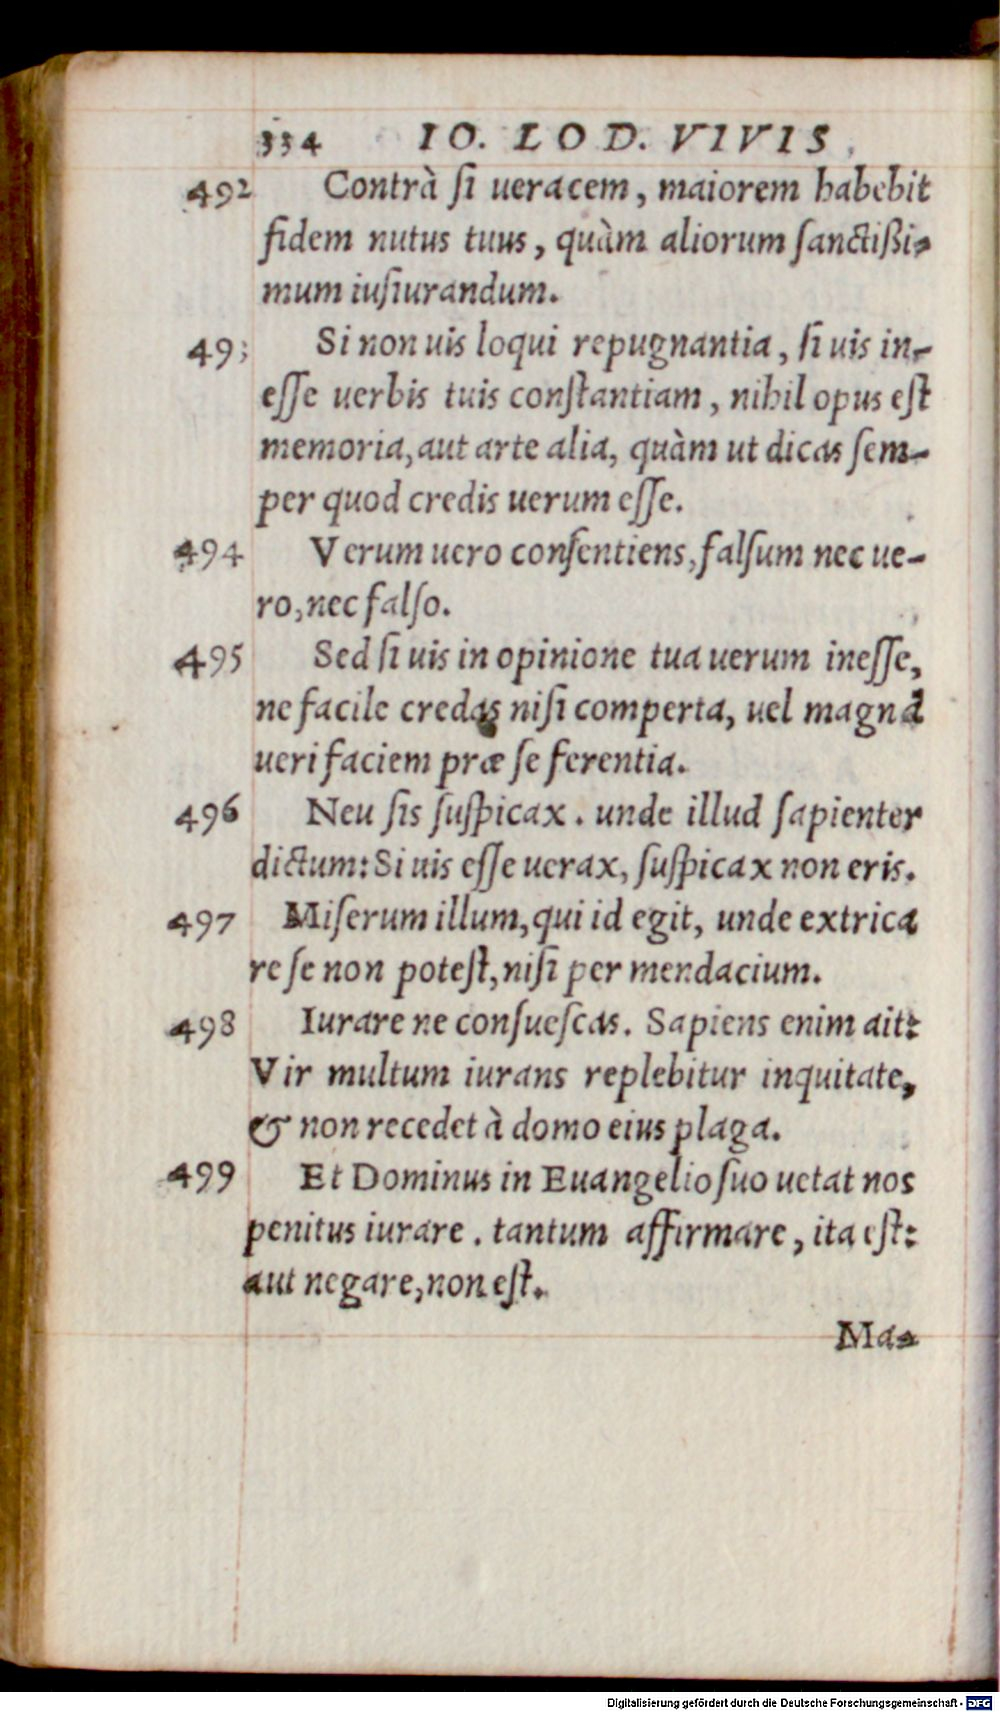 334 IO. LOD. VIVIS
492 Contrà ſi ueracem, maiorem habebit
fidem nutus tuus, quàm aliorum ſanctißi-
mum iuſiurandum.
493 Si non uis loqui repugnantia, ſi uis in-
eſſe uerbis tuis conſtantiam, nihil opus eſt
memoria, aut arte alia, quàm ut dicas ſem-
per quod credis uerum eſſe.
494 Verum uero conſentiens, falſum nec ue-
ro, nec falſo.
495 Sed ſi uis in opinione tua uerum ineſſe,
ne facile credas niſi comperta, uel magnā
ueri faciem præ ſe ferentia.
496 Neu ſis ſuſpicax. unde illud ſapienter
dictum: Si uis eſſe uerax, ſuſpicax non eris.
497 Miſerum illum, qui id egit, unde extrica
re ſe non poteſt, niſi per mendacium.
498 Iurare ne conſueſcas. Sapiens enim ait:
Vir multum iurans replebitur inquitate,
& non recedet à domo eius plaga.
499 Et Dominus in Euangelio ſuo uetat nos
penitus iurare. tantum affirmare, ita eſt:
aut negare, non eſt.
Ma-
Digitalisierung gefördert durch die Deutsche Forschungsgemeinschaft - DFG